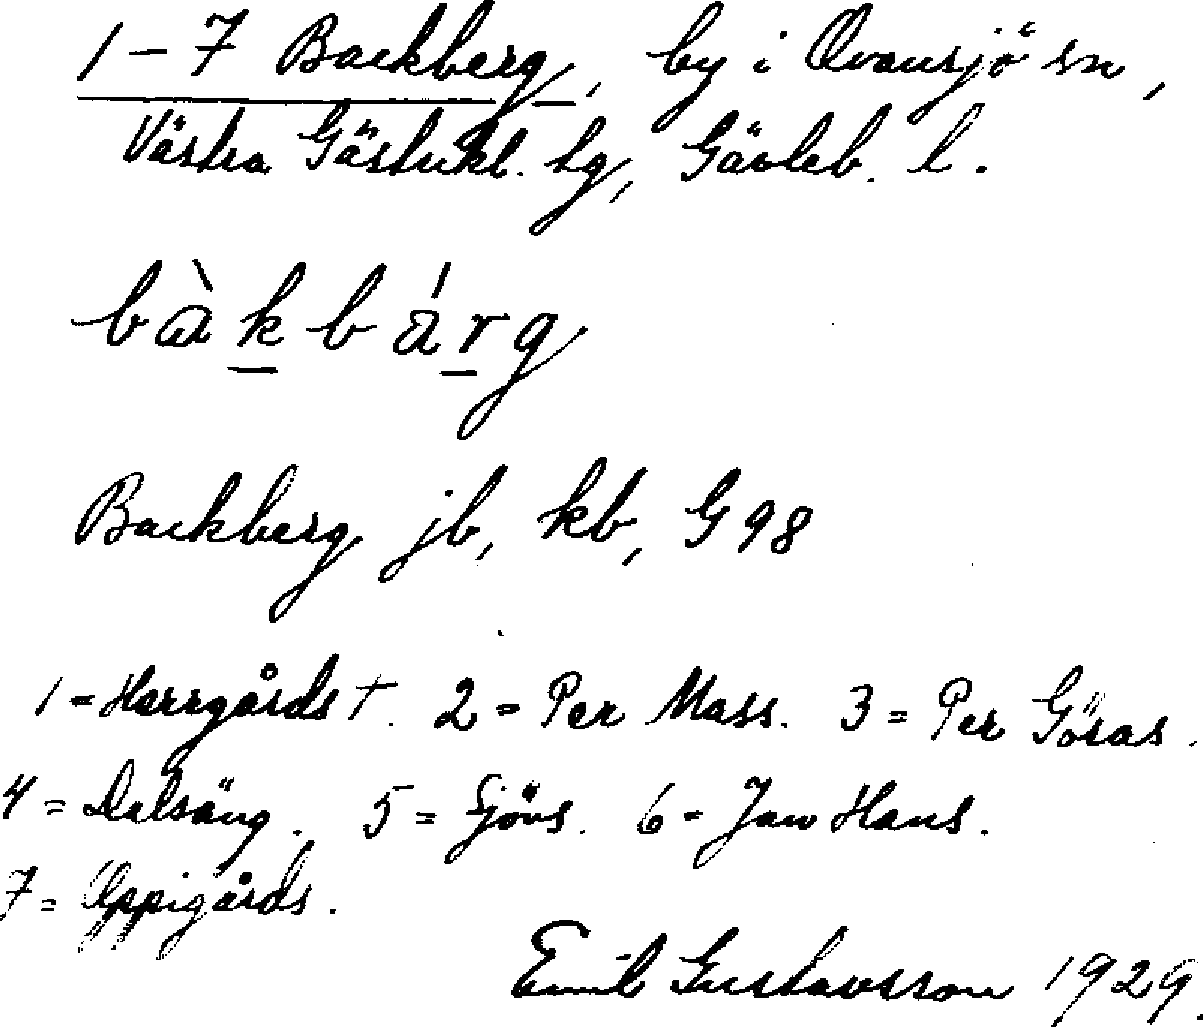 1-7 Backberg, by i Ovansjö sn,
Västra Gästrikl. tg, Gävleb. l.
bàkbárg
Backberg jb, kb, G 98
1 = Herrgårds †. 2 = Per Mass. 3 = Per Göras.
4 = Dalsäng. 5 = Sjövs. 6 = Jan Hans.
7 = Oppigårds.
Emil Gustavsson 1929.